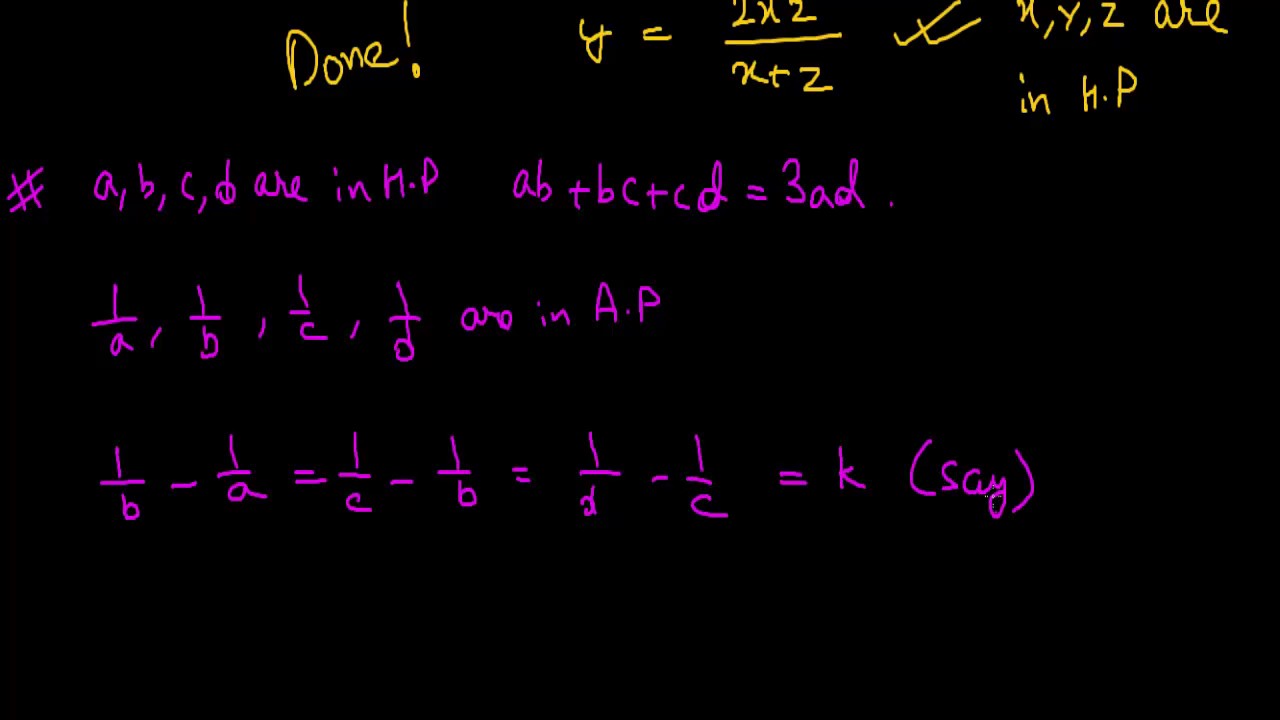 Done! y = 2xz / x+z ✓ x, y, z are
in H.P
# a, b, c, d are in H.P ab + bc + cd = 3ad.
1/a, 1/b, 1/c, 1/d are in A.P
1/b - 1/a = 1/c - 1/b = 1/d - 1/c = k (say)